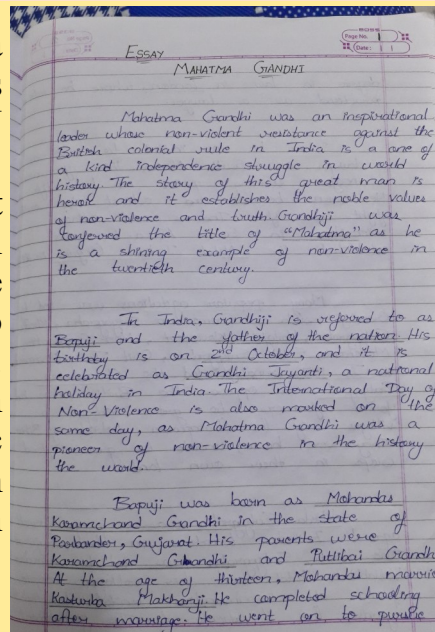 Page No. 1
Date:
ESSAY
MAHATMA GANDHI
Mahatma Gandhi was an inspirational
leader whose non-violent resistance against the
British colonial rule in India is a one of
a kind independence struggle in world
history. The story of this great man is
heroic and it establishes the noble values
of non-violence and truth. Gandhiji was
conferred the title of "Mahatma" as he
is a shining example of non-violence in
the twentieth century.
In India, Gandhiji is referred to as
Bapuji and the father of the nation. His
birthday is on 2nd October, and it is
celebrated as Gandhi Jayanti, a national
holiday in India. The International Day of
Non-Violence is also marked on the
same day, as Mahatma Gandhi was a
pioneer of non-violence in the history
the world.
Bapuji was born as Mohandas
Karamchand Gandhi in the state of
Porbander, Gujarat. His parents were
Karamchand Gandhi and Putlibai Gandh
At the age of thirteen, Mohandas marrie
Kasturba Makhanji. He completed schooling
after marriage. He went on to pursue